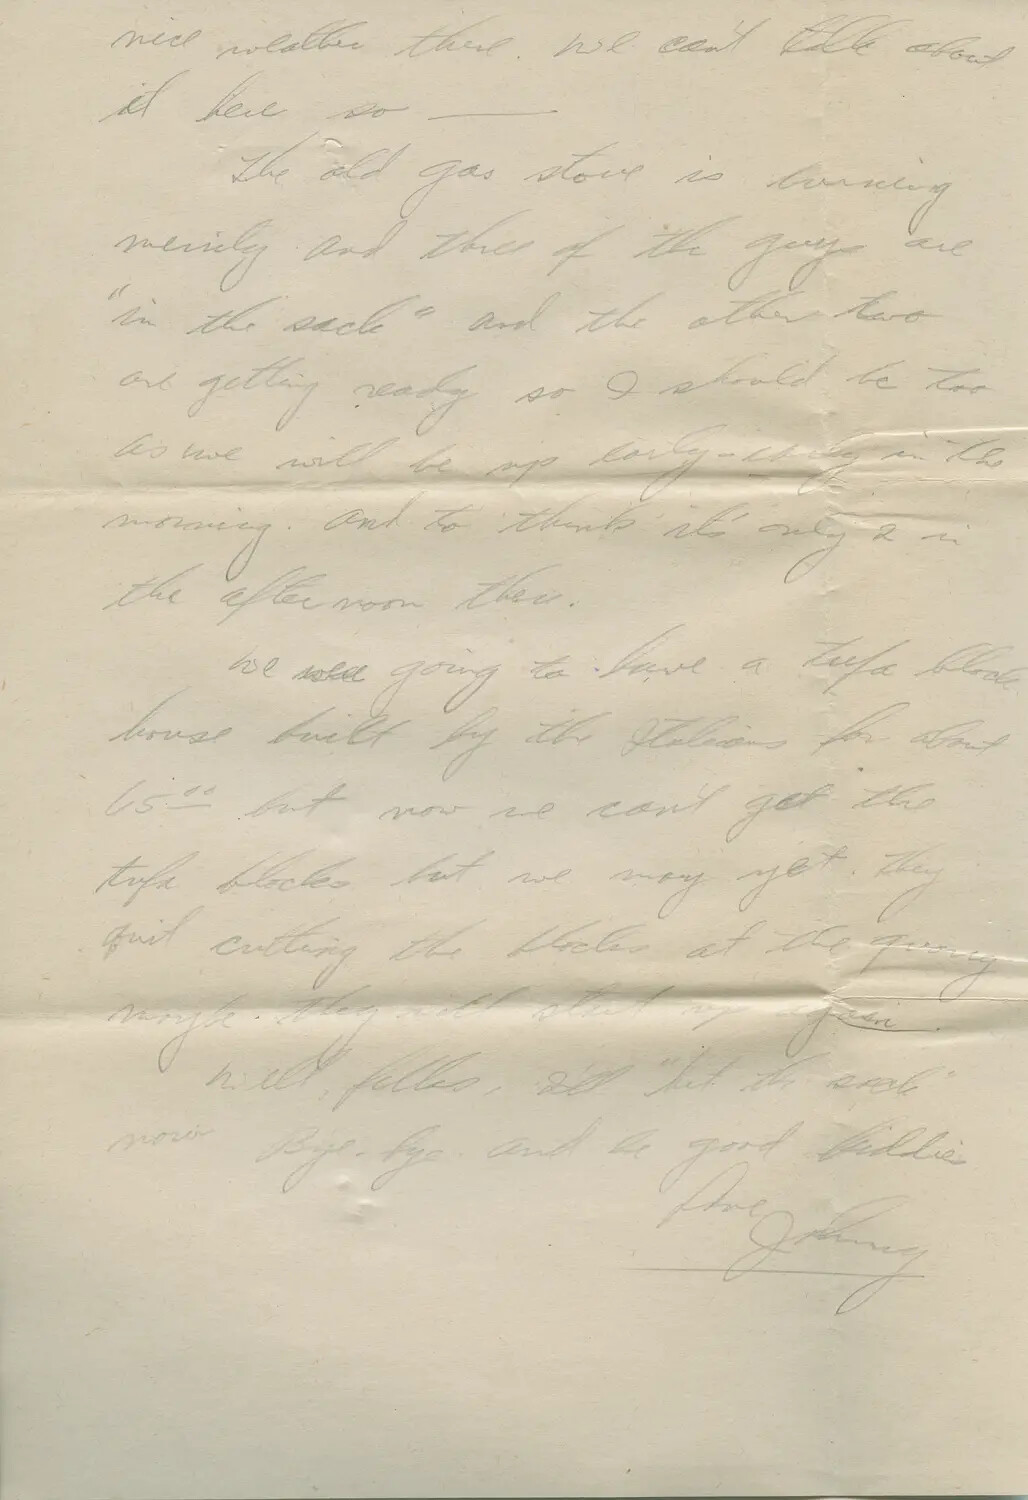 nice weather there. We can't talk about
it here so —
The old gas stove is burning
merrily and three of the guys are
"in the sack" and the other two
are getting ready so I should be too
as we will be up early-early in the
morning. And to think it's only 2 in
the afternoon there.
We were going to have a tufa block
house built by the Italians for about
65⁰⁰ but now we can't get the
tufa blocks but we may yet. They
quit cutting the blocks at the quarry
maybe. They will start up again.
Well, folks, I'll "hit the sack"
now Bye-bye and be good kiddies
Love
Johnny